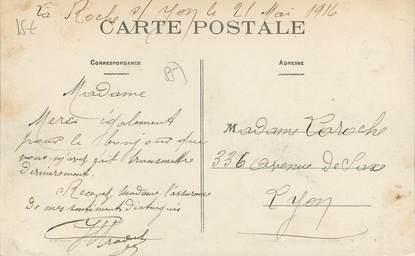 La Roche s/ Yon le 21 Mai 1916
15€
CARTE POSTALE
CORRESPONDANCE
ADRESSE
85
Madame
Merci également
pour le bonjour que
vous m'avez fait transmettre
dernièrement.
Recevez Madame, l'assurance
de mes sentiment distingués
Madame Laroche
336 avenue de Saxe
Lyon